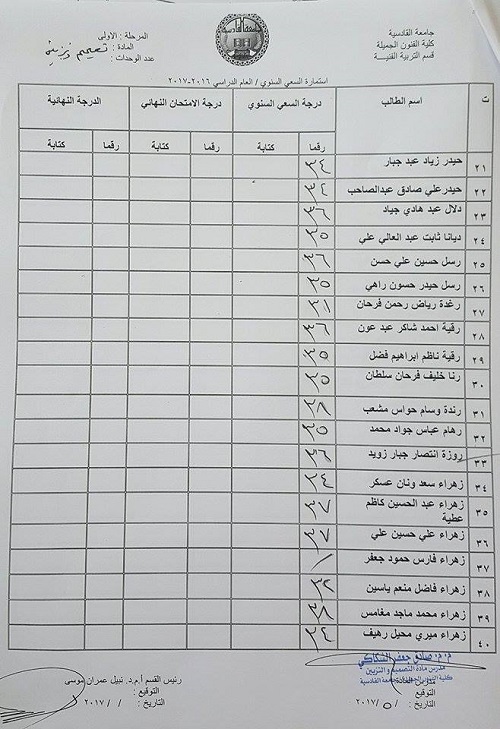 جامعة القادسية
كلية الفنون الجميلة
قسم التربية الفنية
المرحلة : الاولى
المادة : تصميم وتزيين
عدد الوحدات :
استمارة السعي السنوي / العام الدراسي ٢٠١٦-٢٠١٧
ت اسم الطالب درجة السعي السنوي درجة الامتحان النهائي الدرجة النهائية
رقما كتابة رقما كتابة رقما كتابة
٢١ حيدر زياد عبد جبار ٣٤
٢٢ حيدر علي صادق عبدالصاحب
٢٣ دلال عبد هادي جياد ٣٦
٢٤ ديانا ثابت عبد العالي علي ٣٥
٢٥ رسل حسين علي حسن ٣٦
٢٦ رسل حيدر حسون راهي ٣٥
٢٧ رغدة رياض رحمن فرحان
٢٨ رقية احمد شاكر عبد عون ٣٦
٢٩ رقية ناظم ابراهيم فضل ٣٥
٣٠ رنا خليف فرحان سلطان ٣٥
٣١ رندة وسام حواس مشعب ٣٨
٣٢ رهام عباس جواد محمد ٣٥
٣٣ روزة انتصار جبار زويد ٣٦
٣٤ زهراء سعد ونان عسكر ٣٤
٣٥ زهراء عبد الحسين كاظم عطية ٣٧
٣٦ زهراء علي حسين علي ٣٧
٣٧ زهراء فارس حمود جعفر
٣٨ زهراء فاضل منعم ياسين ٣٢
٣٩ زهراء محمد ماجد مغامس
٤٠ زهراء ميري محيل رهيف
م.م. صادق جعفر
مدرس مادة التصميم والتزيين
كلية الفنون الجميلة / جامعة القادسية
مدرس المادة :
التوقيع
التاريخ : /٥ /٢٠١٧
رئيس القسم أ.م.د. نبيل عمران موسى
التوقيع :
التاريخ : / /٢٠١٧